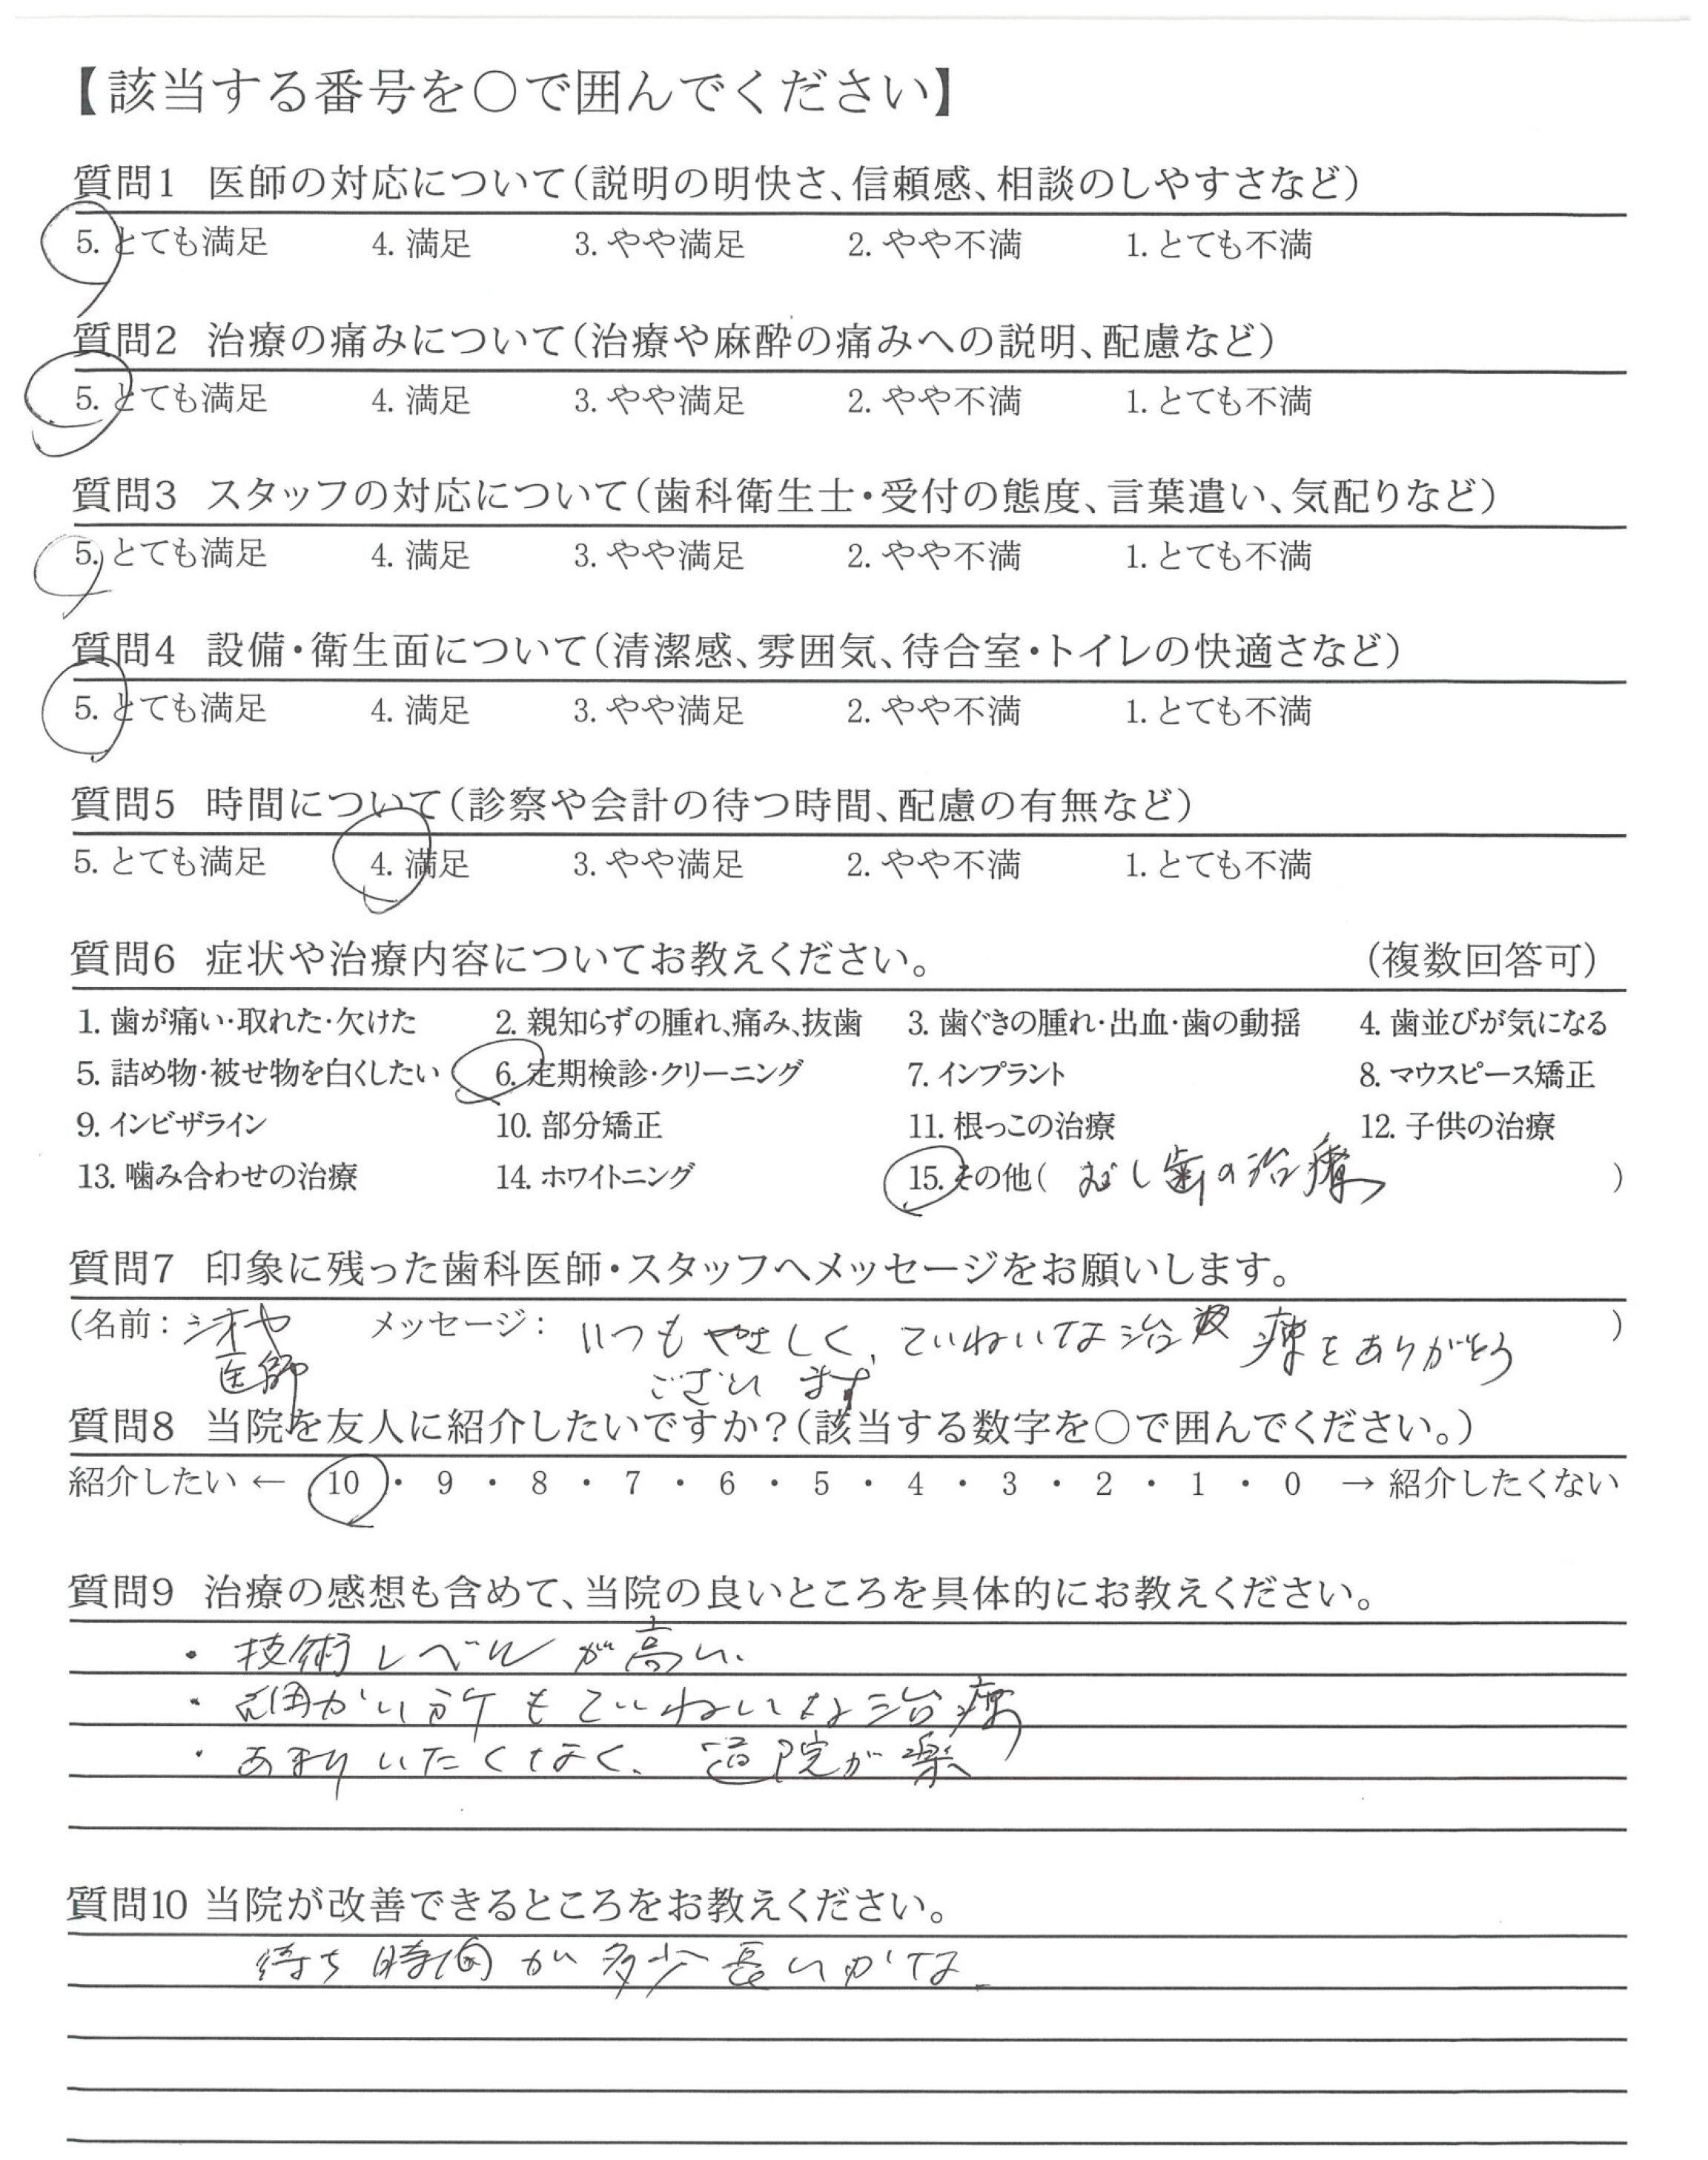 【該当する番号を○で囲んでください】
質問1 医師の対応について(説明の明快さ、信頼感、相談のしやすさなど)
5. とても満足 4. 満足 3. やや満足 2. やや不満 1. とても不満
質問2 治療の痛みについて(治療や麻酔の痛みへの説明、配慮など)
5. とても満足 4. 満足 3. やや満足 2. やや不満 1. とても不満
質問3 スタッフの対応について(歯科衛生士・受付の態度、言葉遣い、気配りなど)
5. とても満足 4. 満足 3. やや満足 2. やや不満 1. とても不満
質問4 設備・衛生面について(清潔感、雰囲気、待合室・トイレの快適さなど)
5. とても満足 4. 満足 3. やや満足 2. やや不満 1. とても不満
質問5 時間について(診察や会計の待つ時間、配慮の有無など)
5. とても満足 4. 満足 3. やや満足 2. やや不満 1. とても不満
質問6 症状や治療内容についてお教えください。 (複数回答可)
1. 歯が痛い・取れた・欠けた 2. 親知らずの腫れ、痛み、抜歯 3. 歯ぐきの腫れ・出血・歯の動揺 4. 歯並びが気になる
5. 詰め物・被せ物を白くしたい 6. 定期検診・クリーニング 7. インプラント 8. マウスピース矯正
9. インビザライン 10. 部分矯正 11. 根っこの治療 12. 子供の治療
13. 噛み合わせの治療 14. ホワイトニング 15. その他( むし歯の治療 )
質問7 印象に残った歯科医師・スタッフへメッセージをお願いします。
(名前: シオヤ メッセージ: いつもやさしく、ていねいな治療をありがとう )
医師 ございます
質問8 当院を友人に紹介したいですか?(該当する数字を○で囲んでください。)
紹介したい ← 10 ・ 9 ・ 8 ・ 7 ・ 6 ・ 5 ・ 4 ・ 3 ・ 2 ・ 1 ・ 0 → 紹介したくない
質問9 治療の感想も含めて、当院の良いところを具体的にお教えください。
・ 技術レベルが高い.
・ 細かい所もていねいな治療
・ あまりいたくなく、通院が楽
質問10 当院が改善できるところをお教えください。
待ち時間が多少長いかな